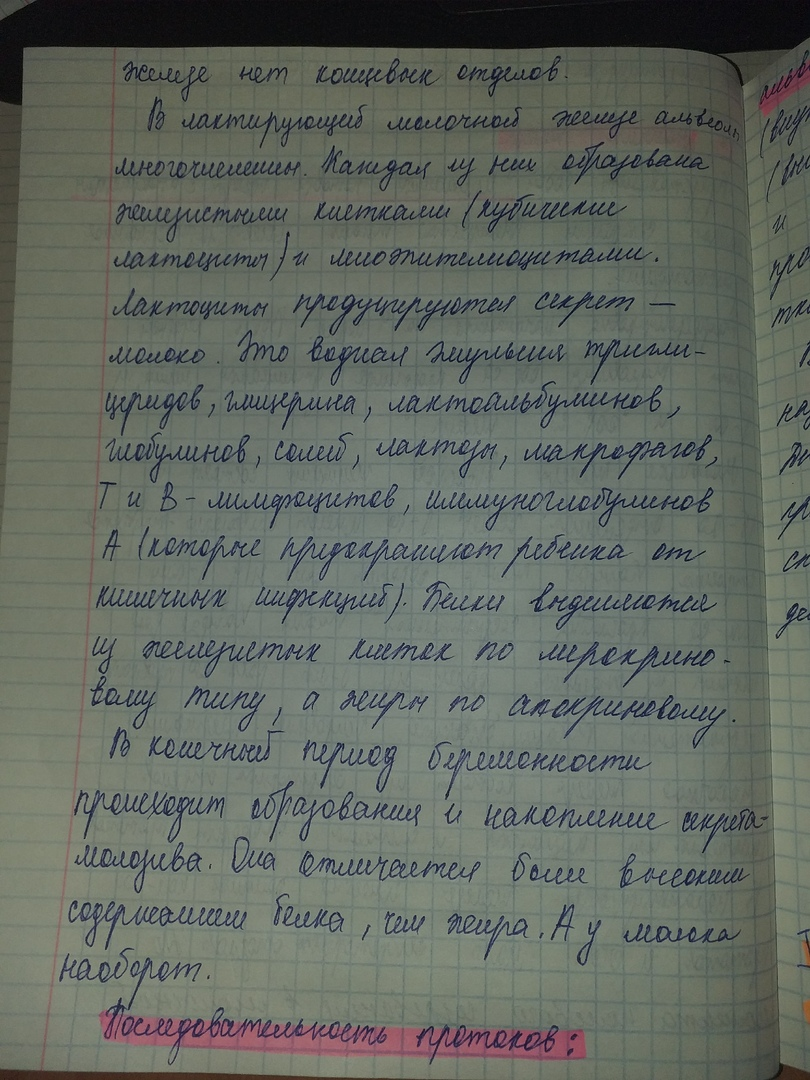 железе нет концевых отделов.
В лактирующей молочной железе альвеолы
многочислены. Каждая из них образована
железистыми клетками (кубические
лактоциты) и миоэпителиоцитами.
Лактоциты продуцируются секрет —
молоко. Это водная эмульсия тригли-
церидов, глицерина, лактоальбуминов,
глобулинов, солей, лактозы, макрофагов,
Т и В - лимфоцитов, иммуноглобулинов
А (которые предохраняют ребенка от
кишечных инфекций). Белки выделяются
из железистых клеток по мерокрино-
вому типу, а жиры по апокриновому.
В конечный период беременности
происходит образования и накопление секрета-
молозива. Она отличается более высоким
содержанием белка, чем жира. А у молока
наоборот.
Последовательность протоков:
альв
и
про
тка